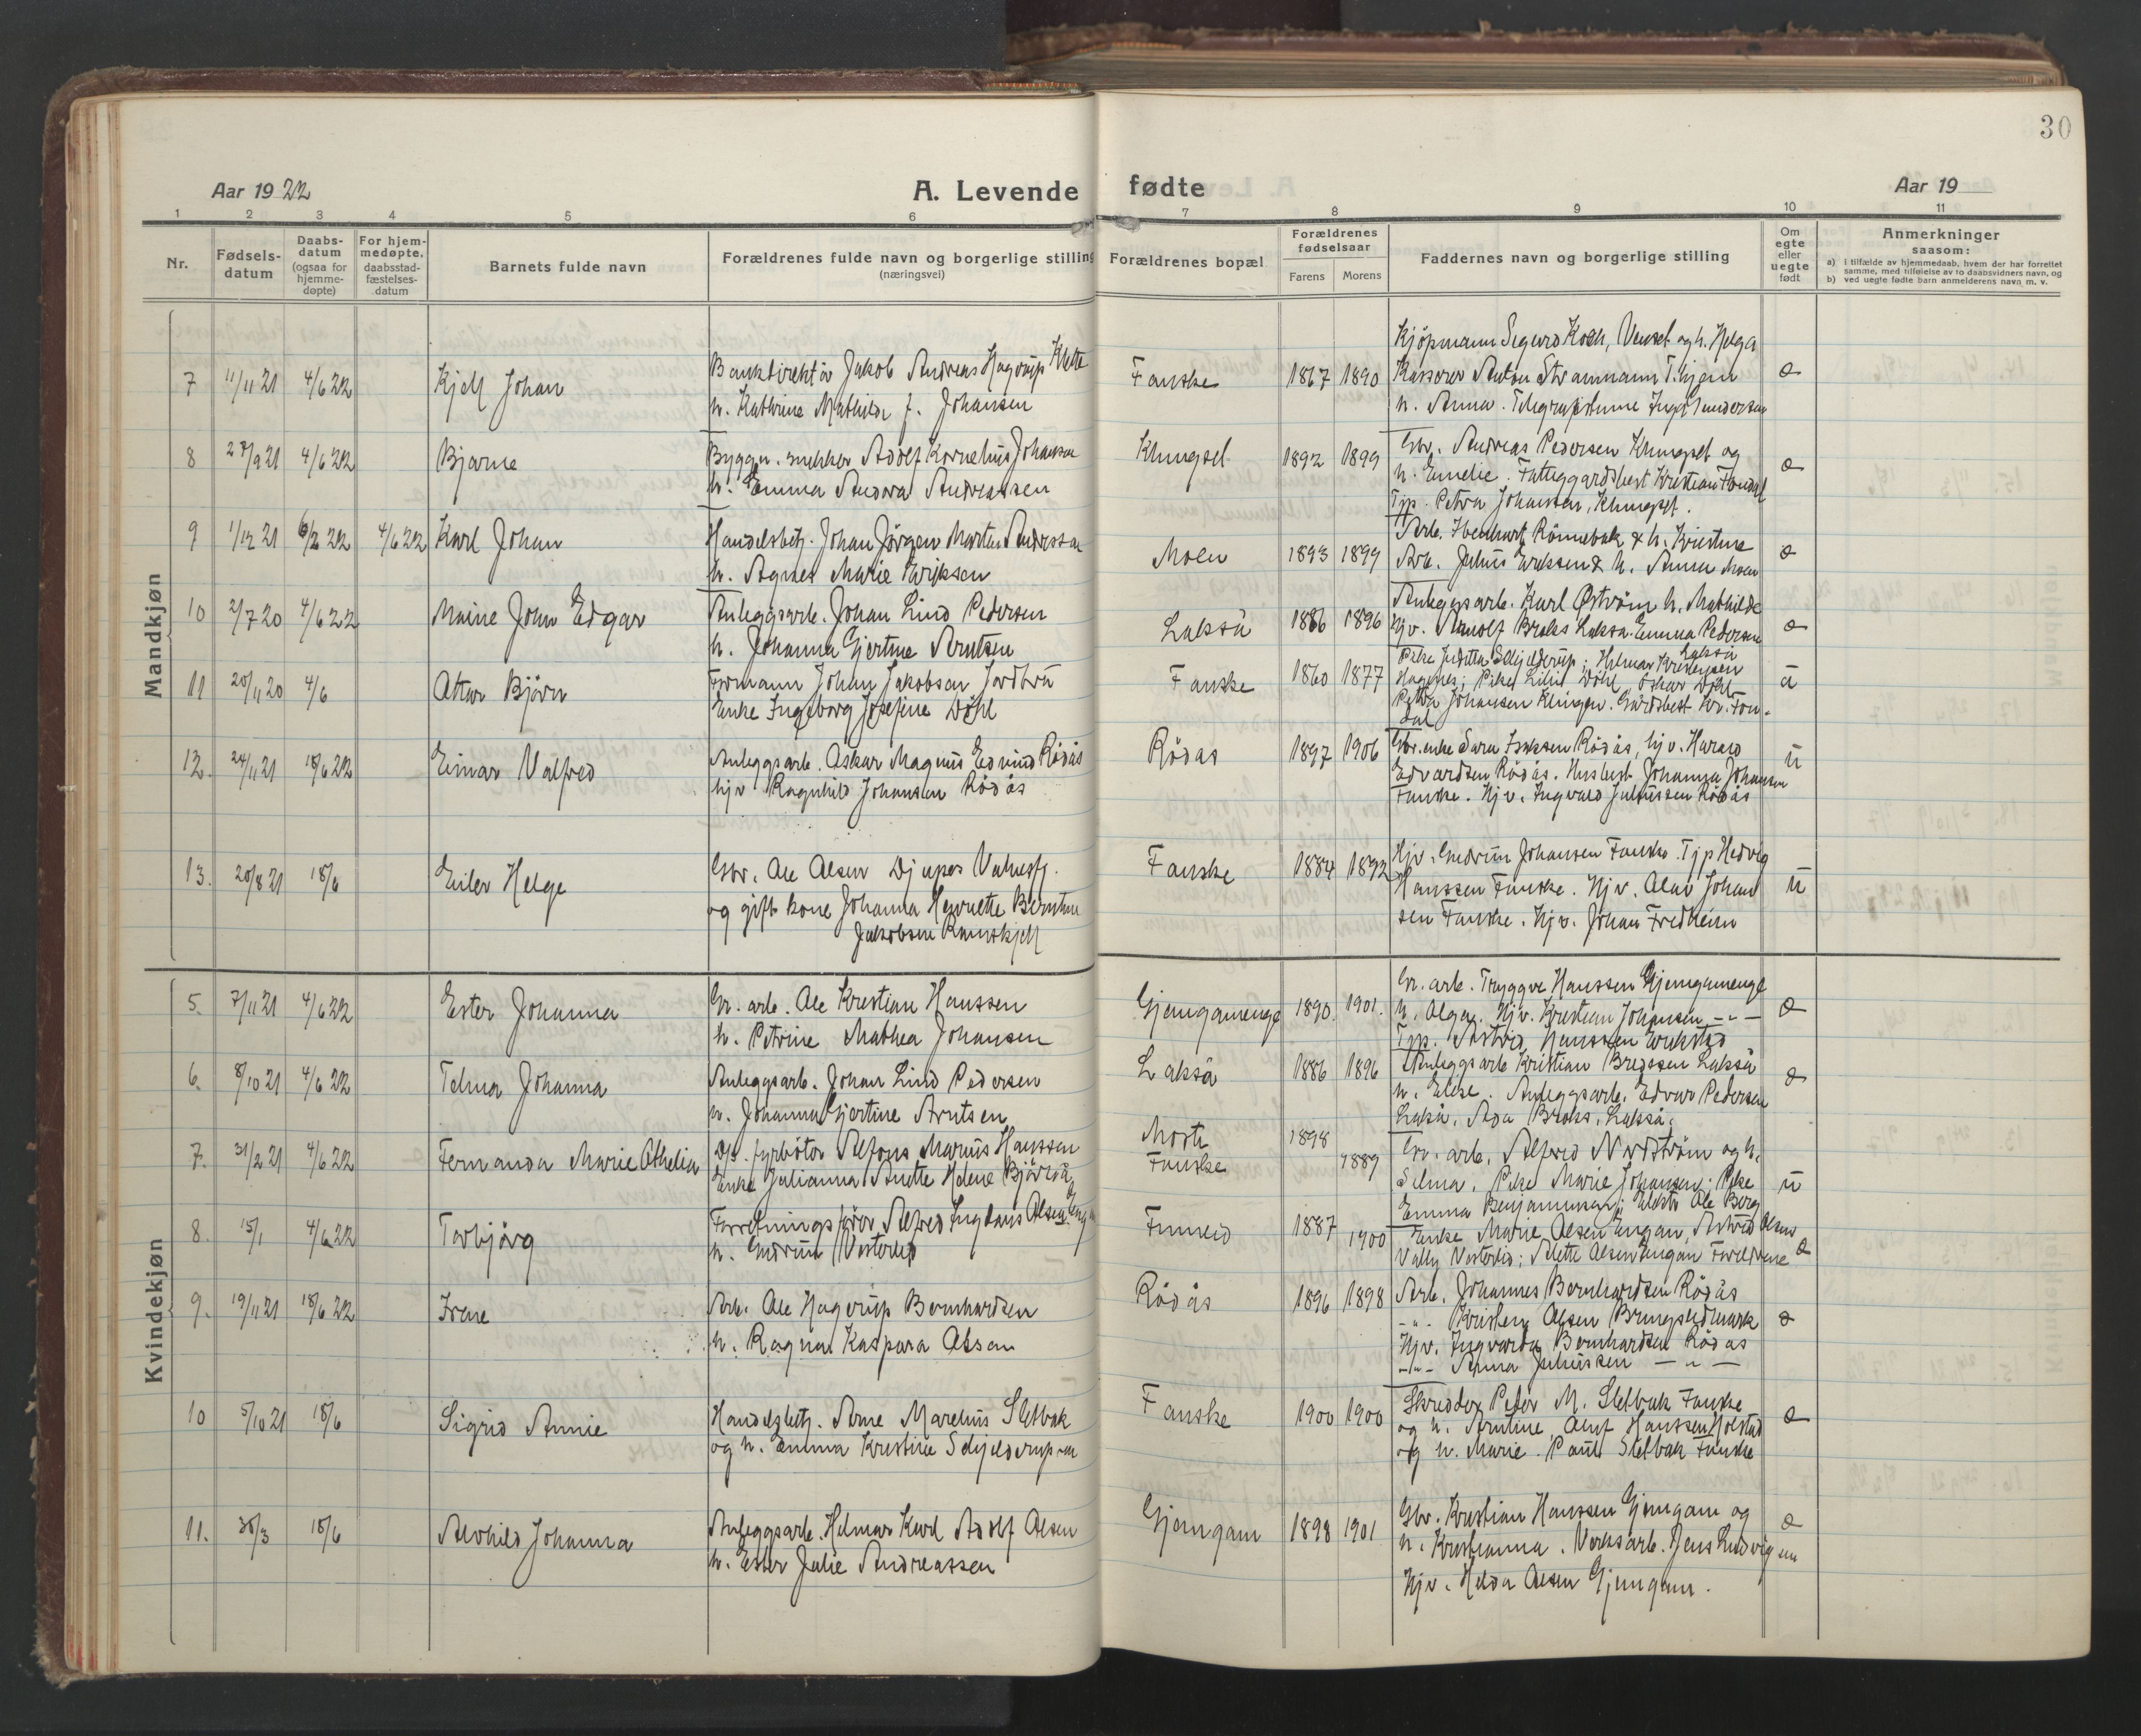 30
Aar 1922
A. Levende fødte
Aar 19
1 2 3 4 5 6 7 8 9 10 11
Nr.
Fødsels-
datum
Daabs-
datum
(ogsaa for
hjemme-
døpte)
For hjem-
medøpte,
daabsstad-
fæstelses-
datum
Barnets fulde navn
Forældrenes fulde navn og borgerlige stilling
(næringsvei)
Forældrenes bopæl
Forældrenes
fødselsaar
Farens
Morens
Faddernes navn og borgerlige stilling
Om
egte
eller
uegte
født
Anmerkninger
saasom:
a) i tilfælde av hjemmedaab, hvem der har forrettet
samme, med tilføielse av to daabsvidners navn, og
b) ved uegte fødte barn anmelderens navn m. v.
Mandkjøn
7 11/11 21 4/6 22 Kjell Johan
Bankdirektör Jakob Andreas Hagrup Klette
h. Kathrine Mathilde f. Johansen
Fauske 1867 1890
Kjöpmann Sigurd Koch, Venset og h. Helga
Kasserer Anton Strammann T.hjem
h. Anna. Telegrafistinne Inga Gundersen
e
8 27/9 21 4/6 22 Bjarne
Byggn. snekker Adolf Kornelius Johansen
h. Emma Andora Andreassen
Klungset 1892 1899
Gbr. Andreas Pedersen Klungset og
h. Emelie. Fattiggardsbest Kristian Fondal
Tjp. Petra Johansen, Klungset.
e
9 1/12 21 6/2 22 4/6 22 Karl Johan
Handelsbetj. Johan Jörgen Martin Andreassen
h. Agnes Marie Eriksen
Moen 1893 1899
Arb. Ebenhart Rönnebek & h. Kristine
Arb. Julius Eriksen & h. Anna Moen
e
10 2/7 20 4/6 22 Maine John Edgar
Anleggsarb. Johan Lind Pedersen
h. Johanna Gjertine Arntsen
Lakså 1886 1896
Anleggsarb. Karl Øström h. Mathilde
Gjv. Arnolf Broks Lakså. Emma Pedersen
Lakså
e
11 20/11 20 4/6 Attar Björn
Formann Johan Jakobsen Jordbrü
Enke Ingeborg Josefine Döhl
Fauske 1860 1877
Pike Juditta Schjelderup; Helmar Kristensen
Hagenes; Pike Lilli Döhl, Oskar Döhl
Petra Johansen Klingen. Gårdsbest Kr. Fon-
dal
ü
12. 24/11 21 18/6 22 Einar Valfred
Anleggsarb. Oskar Magnus Edvind Rödås
hjv Ragnhild Johansen Rödås
Rödas 1897 1906
Gbr.enke Sara Isaksen Rödås, hjv. Harald
Edvardsen Rödås. Husbest. Johanna Johansen
Fauske. Hjv. Ingvald Juliussen Rödås
ü
13. 20/8 21 18/6 Eiler Helge
Gbr. Ole Olsen Djupos
og gift kone Johanna Henriette Berntine
Jakobsen
Fauske 1884 1892
Hjv. Gudrun Johansen Fauske. Tjp Hedvig
Hanssen Fauske. Hjv. Olav Johan
sen Fauske. Hjv. Johan Fredheim
ü
Kvindekjøn
5. 7/11 21 4/6 22 Ester Johanna
Gr. arb. Ole Kristian Hanssen
h. Petrine Mathea Johansen
Gjemgamenge 1890. 1901.
Gr. arb. Tryggve Hanssen Gjemgamenge
h. Olga. Hjv. Kristian Johansen - " -
Tjp. Astrid Hanssen Erikstad
e
6. 8/10 21 4/6 22 Telma Johanna
Anleggsarb. Johan Lind Pedersen
h. Johanna Gjertine Arntsen
Lakså 1886 1896
Anleggsarb Kristian Bredssen Lakså
h. Elise. Anleggsarb. Edvar Pedersen
Lakså. Ada Broks, Lakså.
e
7. 31/2 21 4/6 22 Fernanda Marie Othelia
Ds. fyrböter Alfons Marius Hanssen
Enke Julianna Anette Helene Björkå
Fauske 1898 1889
Gr. arb. Alfred Nordström og h.
Selma. Pike Marie Johansen; Pike
Emma Benjaminsen; Ole Berg
ü
8. 15/1 4/6 22 Torbjörg
Forretningsförer Alfred Ingolans Olsen Engan
h. Gudrun Vesterlid
Finneid 1887 1900
Enke Marie Olsen Engan, Astrid Olsen
Vally Vesterlid; Alette Olsen Engan Foreldrene
e
9. 19/11 21 18/6 22 Irene
Arb. Ole Hagerup Bernhardsen
h. Ragna Kaspara Olsen
Rödås 1896 1898
Arb. Johannes Bernhardsen Rödås
- " - Kristen Olsen Bringslidmark
Hjv. Ingvarda Bernhardsen Rödås
- " - Anna Juliussen - " -
e
10 5/10 21 18/6 Sigrid Annie
Handelsbetj. Arne Marelius Sletbak
og h. Emma Kristine Schjelderupsen
Fauske 1900 1900
Skredder Peder M. Sletbak Fauske
og h. Arntine, Oluf Hanssen Holstad
og h. Marie. Paul Sletbak Fauske
e
11. 30/3 18/6 Alvhild Johanna
Anleggsarb. Helmar Karl Adolf Olsen
h. Ester Julie Andreassen
Gjemgam 1898 1901
Gbr. Kristian Hanssen Gjemgam og
h. Kristianna. Verksarb. Jens Ludvigsen
Hjv. Helda Olsen Gjemgam.
e